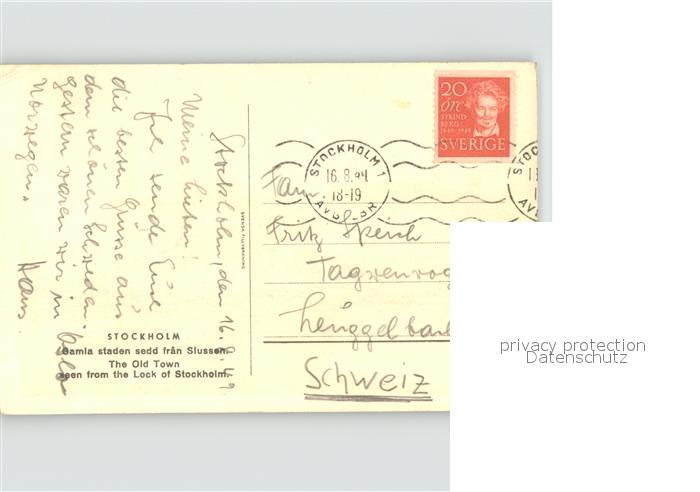 Stockholm, den 16.8.49
Meine Lieben!
Ich sende Euch
die besten Grüsse aus
dem schönen Schweden.
Gestern waren wir in Oslo
Norwegen.
Hans.
STOCKHOLM
Gamla staden sedd från Slussen.
The Old Town
seen from the Lock of Stockholm.
SVENSK TILLVERKNING
20
öre
STRIND
BERG
1849-1949
SVERIGE
STOCKHOLM 1
16.8.49
18-19
AVG.
STOC
AV
Fam.
Fritz
Schweiz
privacy protection
Datenschutz